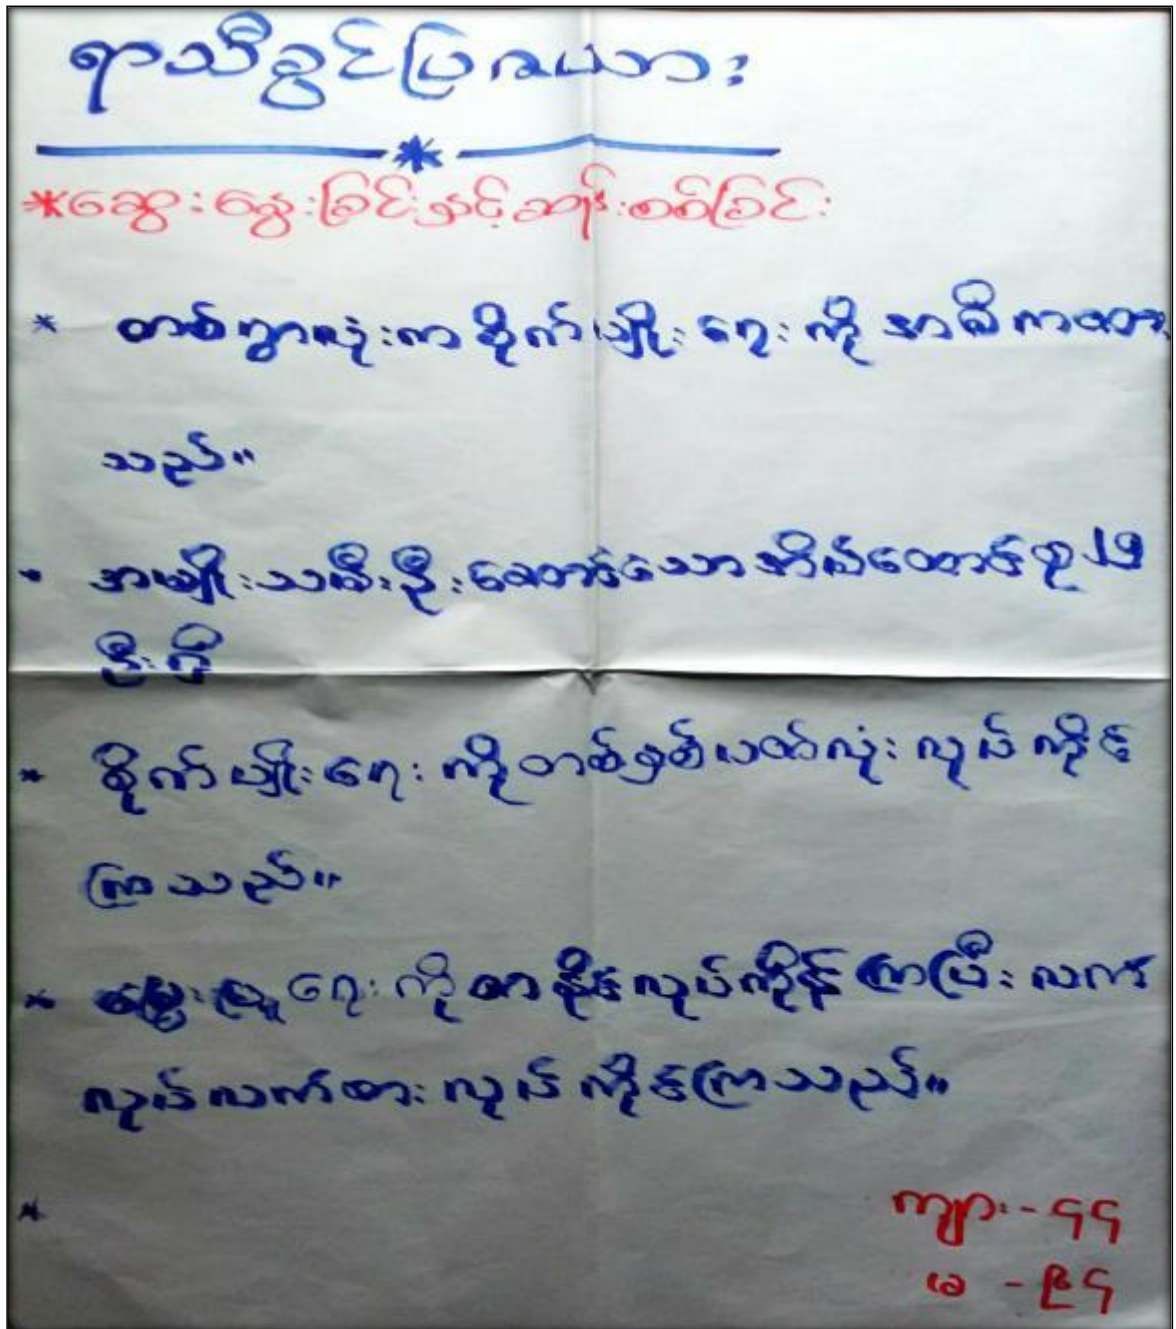 ရာသီခွင်ပြဇယား
*ဆွေးနွေးခြင်းနှင့်ဆန်းစစ်ခြင်း
* တစ်ရွာလုံးက စိုက်ပျိုးရေးကို အဓိကထား
သည်။
* အမျိုးသမီးဦးဆောင်သောအိမ်ထောင်စု ၂၅
ဦးရှိ
* စိုက်ပျိုးရေးကိုတစ်နှစ်ပတ်လုံးလုပ်ကိုင်
ကြသည်။
* မွေးမြူရေးကိုတစ်နိုင်လုပ်ကိုင်ကြပြီးလက်
လုပ်လက်စားလုပ်ကိုင်ကြသည်။
*
ကျား - ၄၄
မ - ၉၄